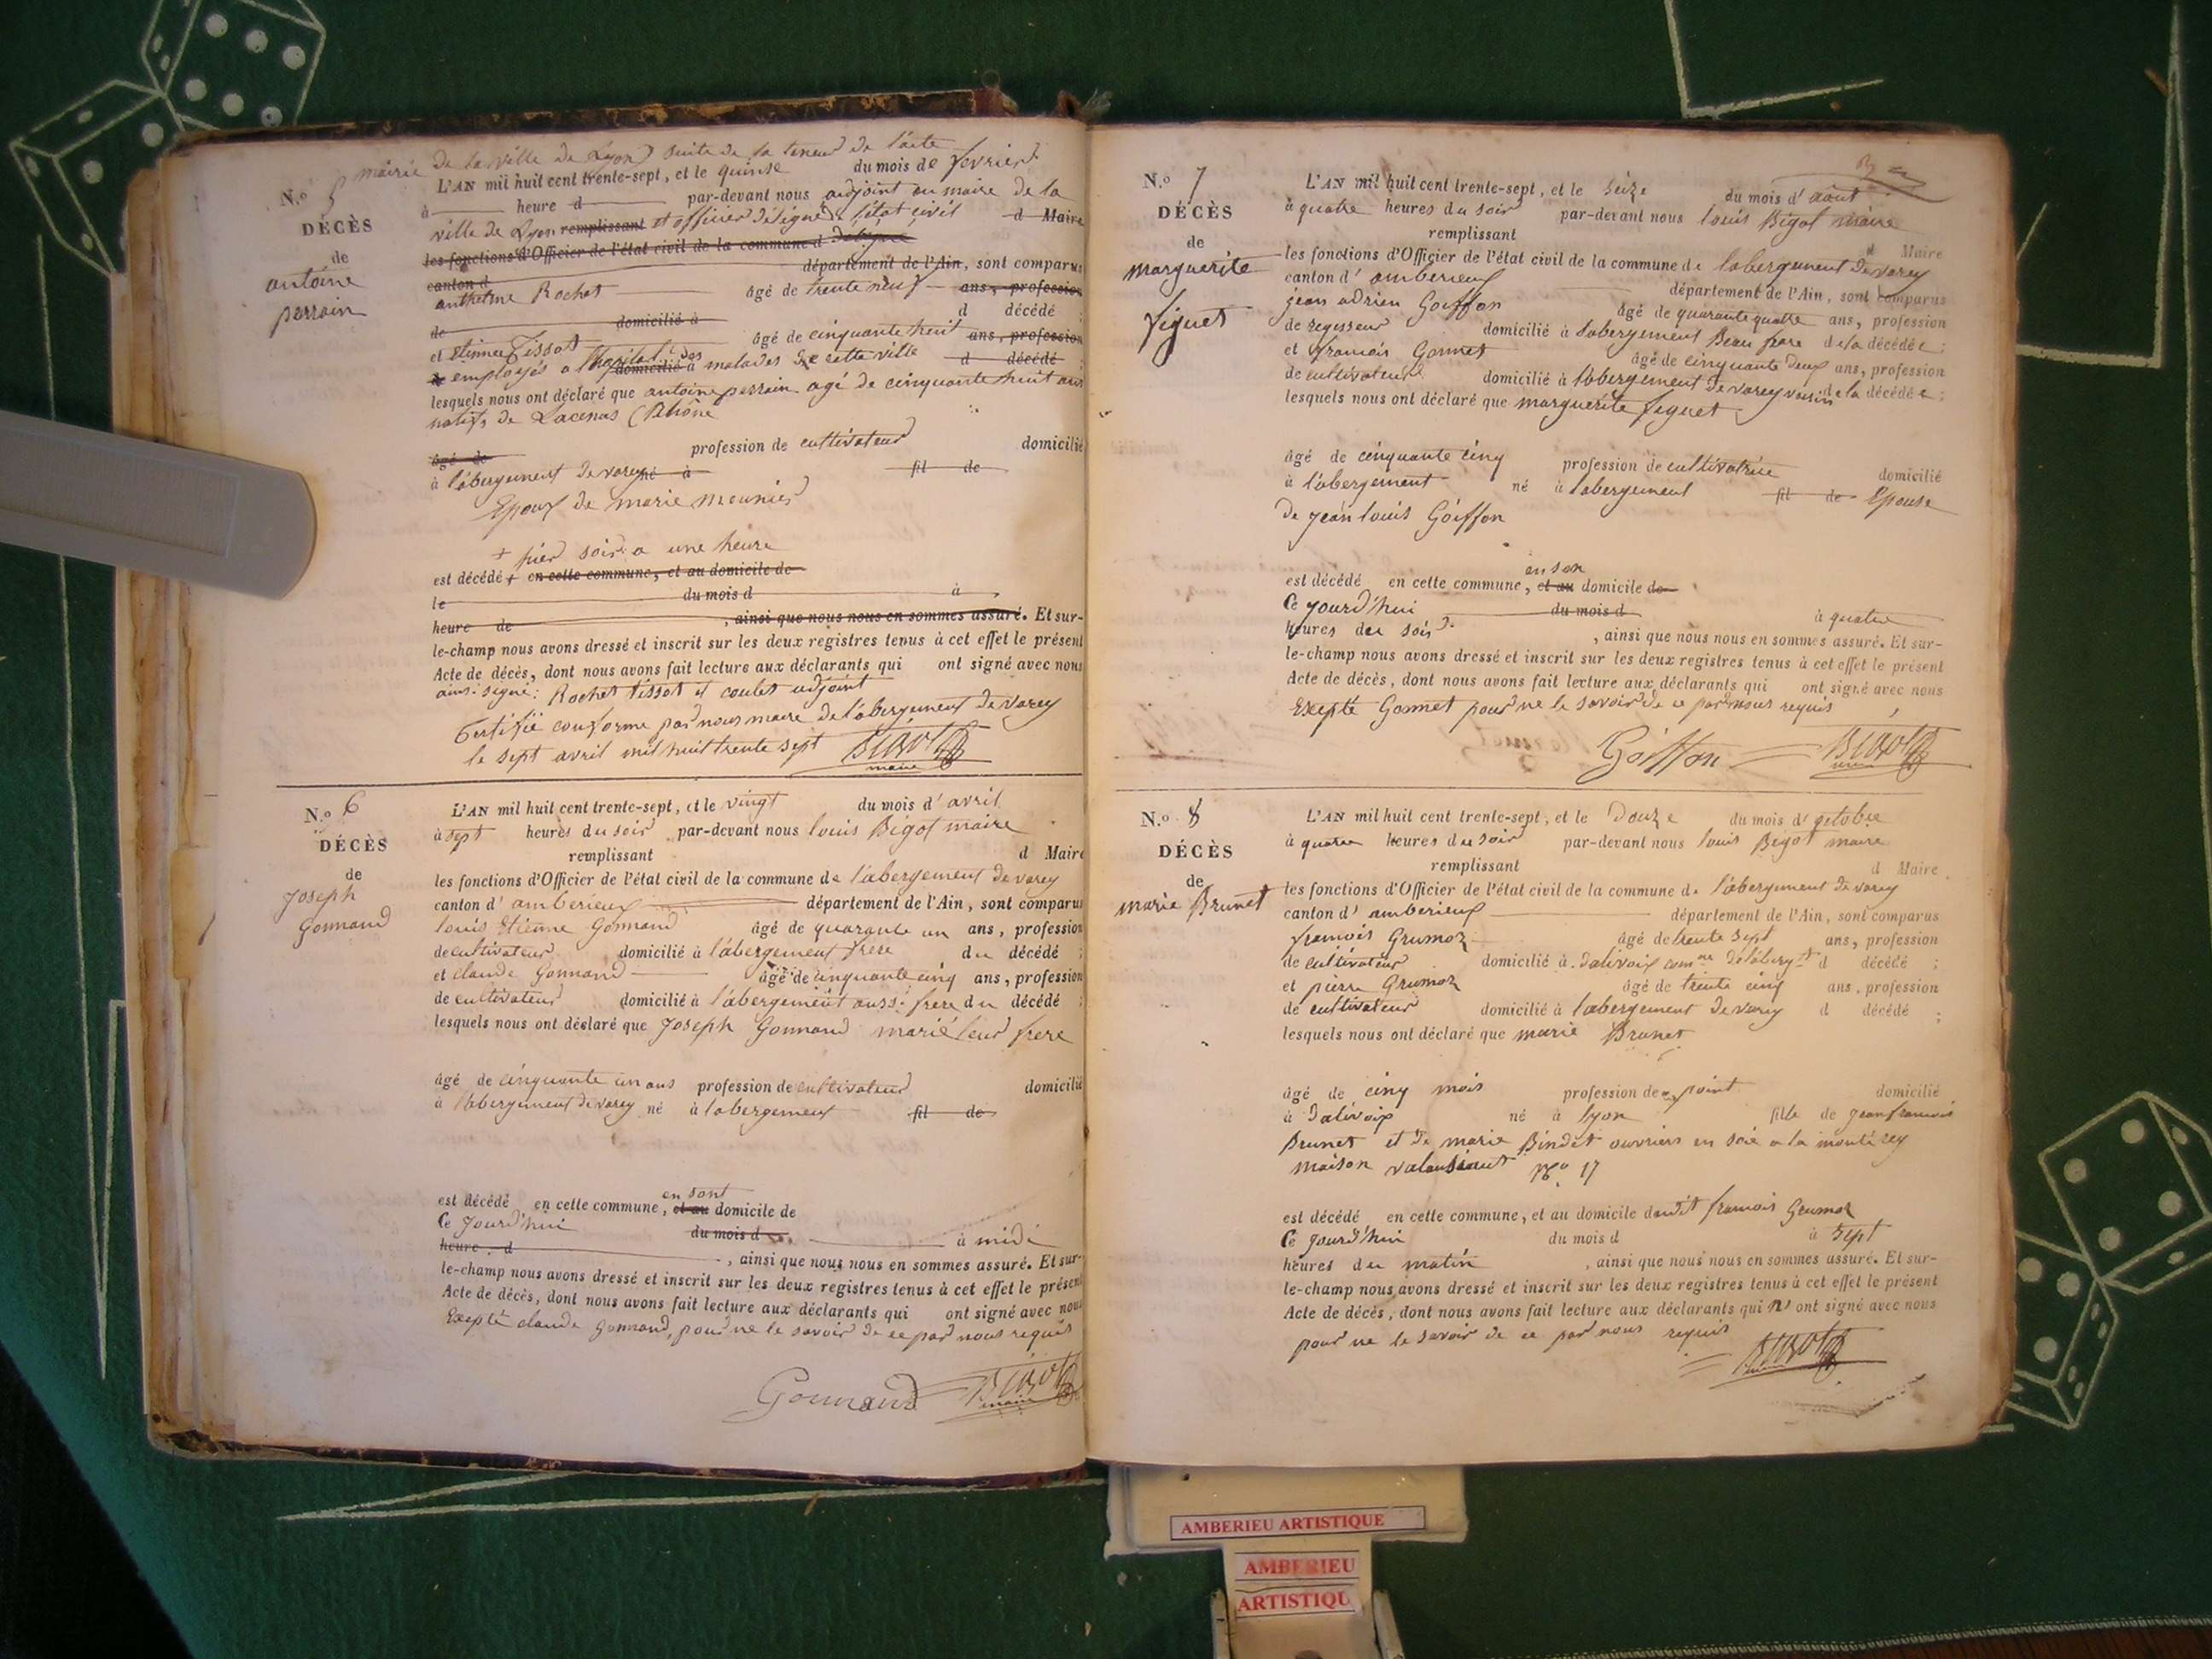 mairie de la ville de Lyon suite de la teneur de l'acte
N.o 5
DÉCÈS
de
antoine
perrain
L'AN mil huit cent trente-sept, et le quinse du mois de fevrier
à heure d par-devant nous adjoint au maire de la
ville de Lyon remplissant et officier délégué l'état civil d Maire
les fonctions d'Officier de l'état civil de la commune d
canton d département de l'Ain, sont comparus
anthelme Rochet âgé de trente neuf ans, profession
de domicilié à d décédé ;
et Etienne Tissot âgé de cinquante huit ans, profession
de employés a l'hopital des domicilié à malades de cette ville d décédé ;
lesquels nous ont déclaré que antoine perrain agé de cinquante huit ans
natif de Lacenas (Rhône
âgé de profession de cultivateur domicilié
à l'abergement de varey né à fil de
Epoux de marie meunier
+ hier soir a une heure
est décédé + en cette commune, et au domicile de
le du mois d à
heure de , ainsi que nous nous en sommes assuré. Et sur-
le-champ nous avons dressé et inscrit sur les deux registres tenus à cet effet le présent
Acte de décès, dont nous avons fait lecture aux déclarants qui ont signé avec nous
ainsi signé: Rochet tissot et coulet adjoint
Certifié conforme par nous maire de l'abergement de varey
le sept avril mil huit trente sept Bigot
maire
N.o 6
DÉCÈS
de
Joseph
Gonnand
L'AN mil huit cent trente-sept, et le vingt du mois d'avril
à sept heures du soir par-devant nous louis Bigot maire
remplissant d Maire
les fonctions d'Officier de l'état civil de la commune de l'abergement de varey
canton d'amberieux département de l'Ain, sont comparus
louis Etienne Gonnand âgé de quarante un ans, profession
de cultivateur domicilié à l'abergement frere du décédé ;
et claude Gonnand âgé de cinquante cinq ans, profession
de cultivateur domicilié à l'abergement aussi frere du décédé ;
lesquels nous ont déclaré que Joseph Gonnand marié leur frere
âgé de cinquante un ans profession de cultivateur domicilié
à l'abergement de varey né à l'abergement fil de
en sont
est décédé en cette commune, et au domicile de
Ce jourd'hui du mois d à midi
heure d , ainsi que nous nous en sommes assuré. Et sur-
le-champ nous avons dressé et inscrit sur les deux registres tenus à cet effet le présent
Acte de décès, dont nous avons fait lecture aux déclarants qui ont signé avec nous
Exepté claude gonnand, pour ne le savoir de ce par nous requis
Gonnand Bigot
maire
N.o 7
DÉCÈS
de
marguerite
figuet
L'AN mil huit cent trente-sept, et le seize du mois d'août
à quatre heures du soir par-devant nous louis Bigot maire
remplissant d Maire
les fonctions d'Officier de l'état civil de la commune de l'abergement de varey
canton d'amberieux département de l'Ain, sont comparus
jean adrien Goiffon âgé de quarante quatre ans, profession
de regisseur domicilié à l'abergement Beau pere de la décédée ;
et francois Gonnet âgé de cinquante deux ans, profession
de cultivateur domicilié à l'abergement de varey voisin de la décédée ;
lesquels nous ont déclaré que marguerite figuet
âgé de cinquante cinq profession de cultivatrice domicilié
à l'abergement né à l'abergement fil de Epouse
de jean louis Goiffon
en son
est décédé en cette commune, et au domicile de
Ce jourd'hui du mois d à quatre
heures du soir , ainsi que nous nous en sommes assuré. Et sur-
le-champ nous avons dressé et inscrit sur les deux registres tenus à cet effet le présent
Acte de décès, dont nous avons fait lecture aux déclarants qui ont signé avec nous
Exepté Gonnet pour ne le savoir de ce par nous requis
Goiffon Bigot
N.o 8
DÉCÈS
de
marie Brunet
L'AN mil huit cent trente-sept, et le Douze du mois d'octobre
à quatre heures du soir par-devant nous louis Bigot maire
remplissant d Maire
les fonctions d'Officier de l'état civil de la commune de l'abergement de varey
canton d'amberieux département de l'Ain, sont comparus
francois Grumoz âgé de trente sept ans, profession
de cultivateur domicilié à dalivoix com.ne de l'aberg.t d décédé ;
et pierre Grumoz âgé de trente cinq ans, profession
de cultivateur domicilié à l'abergement de varey d décédé ;
lesquels nous ont déclaré que marie Brunet
âgé de cinq mois profession de point domicilié
à Dalivoix né à lyon fille de jean francois
Brunet et de marie Bindet ouvriers en soie a la monté rey
maison N.o 17
est décédé en cette commune, et au domicile dudit francois Grumoz
Ce jourd'hui du mois d à Sept
heures du matin , ainsi que nous nous en sommes assuré. Et sur-
le-champ nous avons dressé et inscrit sur les deux registres tenus à cet effet le présent
Acte de décès, dont nous avons fait lecture aux déclarants qui n'ont signé avec nous
pour ne le savoir de ce par nous requis Bigot
AMBERIEU ARTISTIQUE
AMBERIEU
ARTISTIQU